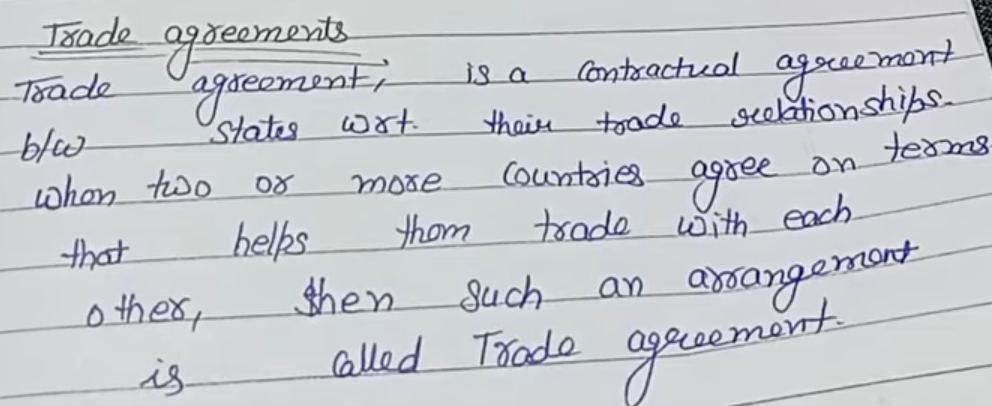 Trade agreements
Trade agreement, is a contractual agreement
b/w states wrt. their trade relationships.
when two or more countries agree on terms
that helps them trade with each
other, then such an arrangement
is called Trade agreement.